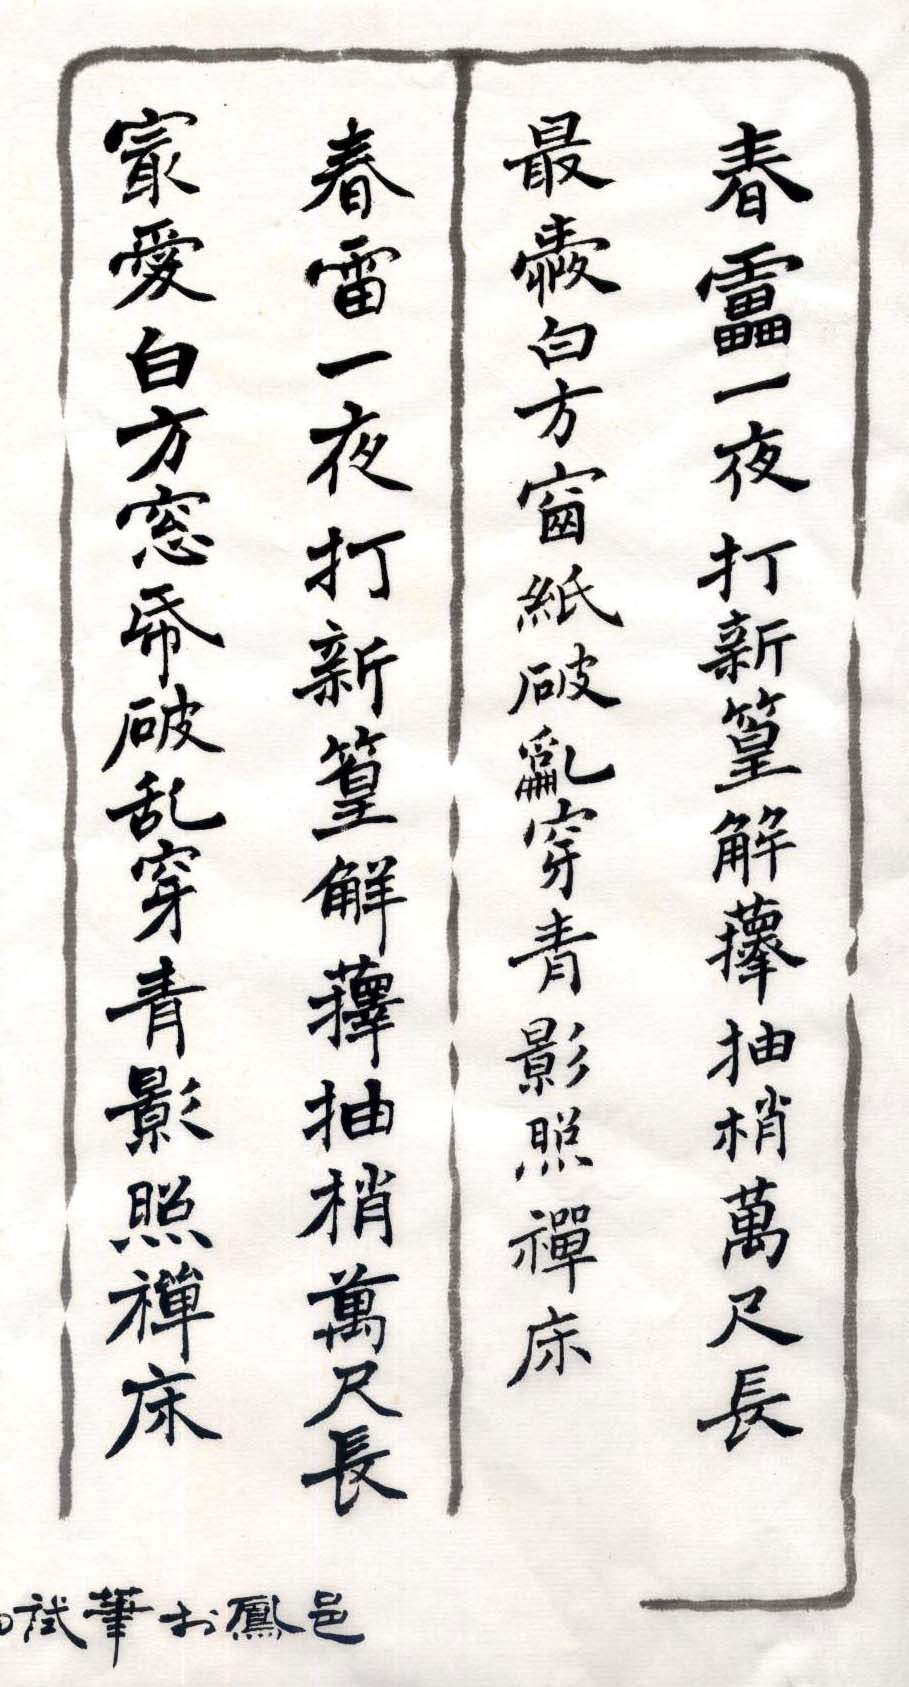 春靁一夜打新篁解籜抽梢萬尺長
最愛白方窗紙破亂穿青影照禪床
春雷一夜打新篁解籜抽梢萬尺長
㝡愛白方窓帋破乱穿青影照禅床
試筆於鳳邑